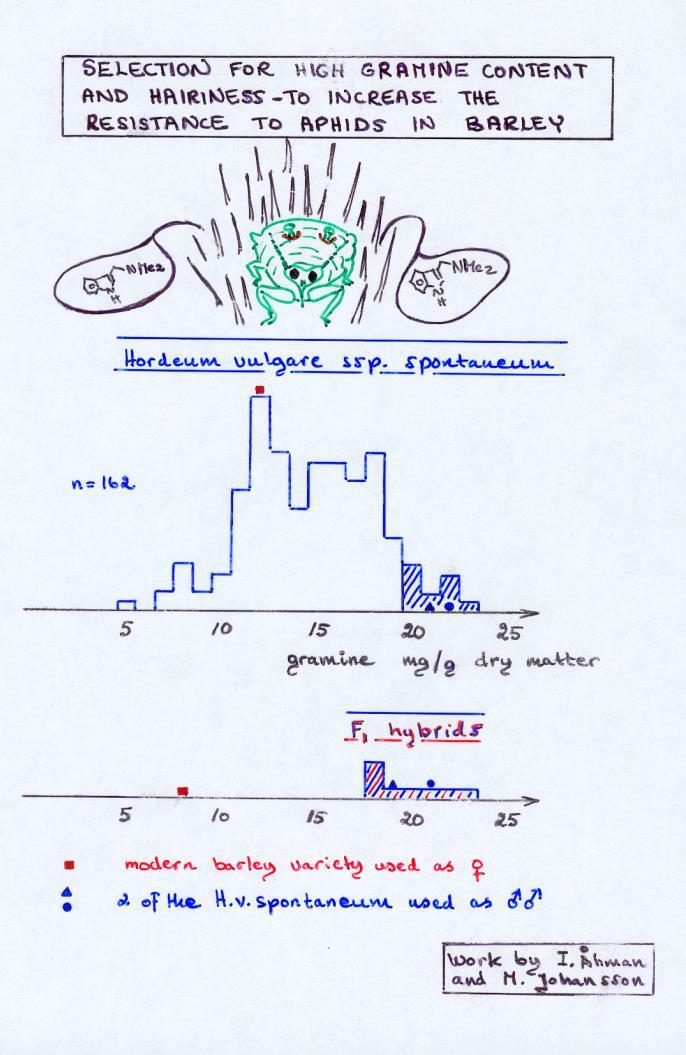 SELECTION FOR HIGH GRAMINE CONTENT
AND HAIRINESS - TO INCREASE THE
RESISTANCE TO APHIDS IN BARLEY
NMe2
N
H
NMe2
N
H
Hordeum vulgare ssp. spontaneum
n=162
5 10 15 20 25
gramine mg/g dry matter
F1 hybrids
5 10 15 20 25
modern barley variety used as ♀
2 of the H.v. spontaneum used as ♂♂
Work by I. Åhman
and M. Johansson